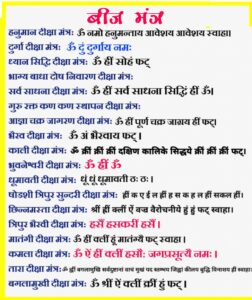 बीज मंत्र
हनुमान दीक्षा मंत्र: ॐ नमो हनुमन्ताय आवेशय आवेशय स्वाहा।
दुर्गा दीक्षा मंत्र: ॐ दुं दुर्गाय नमः
ध्यान सिद्धि दीक्षा मंत्र: ॐ हीं सोहं फट्
भाग्य बाधा दोष निवारण दीक्षा मंत्र:
सर्व साधना दीक्षा मंत्र: ॐ हीं सर्व साधना सिद्धिं हीं ॐ।
गुरु रक्त कण कण स्थापन दीक्षा मंत्र:
आज्ञा चक्र जागरण दीक्षा मंत्र: ॐ हीं चक्र जाग्रय हीं फट्।
भैरव दीक्षा मंत्र: ॐ अं भैरवाय फट्।
काली दीक्षा मंत्र: ॐ क्रीं क्रीं क्रीं दक्षिण कालिके सिद्धये क्रीं क्रीं क्रीं फट्।
भुवनेश्वरी दीक्षा मंत्र: ॐ हीं ॐ
धूमावती दीक्षा मंत्र: धूं धूं धूमावती ठः ठः।
षोडशी त्रिपुर सुन्दरी दीक्षा मंत्र: हीं क ए ई ल हीं ह स क ह ल हीं सकल हीं।
छिन्नमस्ता दीक्षा मंत्र: श्रीं हीं क्लीं ऐं वज्र वैरोचनीये हुं हुं फट् स्वाहा।
त्रिपुर भैरवी दीक्षा मंत्र: हसैं हसकरीं हसैं।
मातंगी दीक्षा मंत्र: ॐ हीं क्लीं हूं मातंग्यै फट् स्वाहा।
कमला दीक्षा मंत्र: ॐ ऐं हीं क्लीं हसौः। जगत्प्रसूत्यै नमः।
तारा दीक्षा मंत्र: ॐ ह्लीं बगलामुखि सर्वदुष्टानां वाचं मुखं पद स्तम्भय जिह्वां कीलय बुद्धि विनाशय ह्लीं स्वाहा।
बगलामुखी दीक्षा मंत्र: ॐ श्रीं ऐं क्लीं क्रीं हुं फट्।